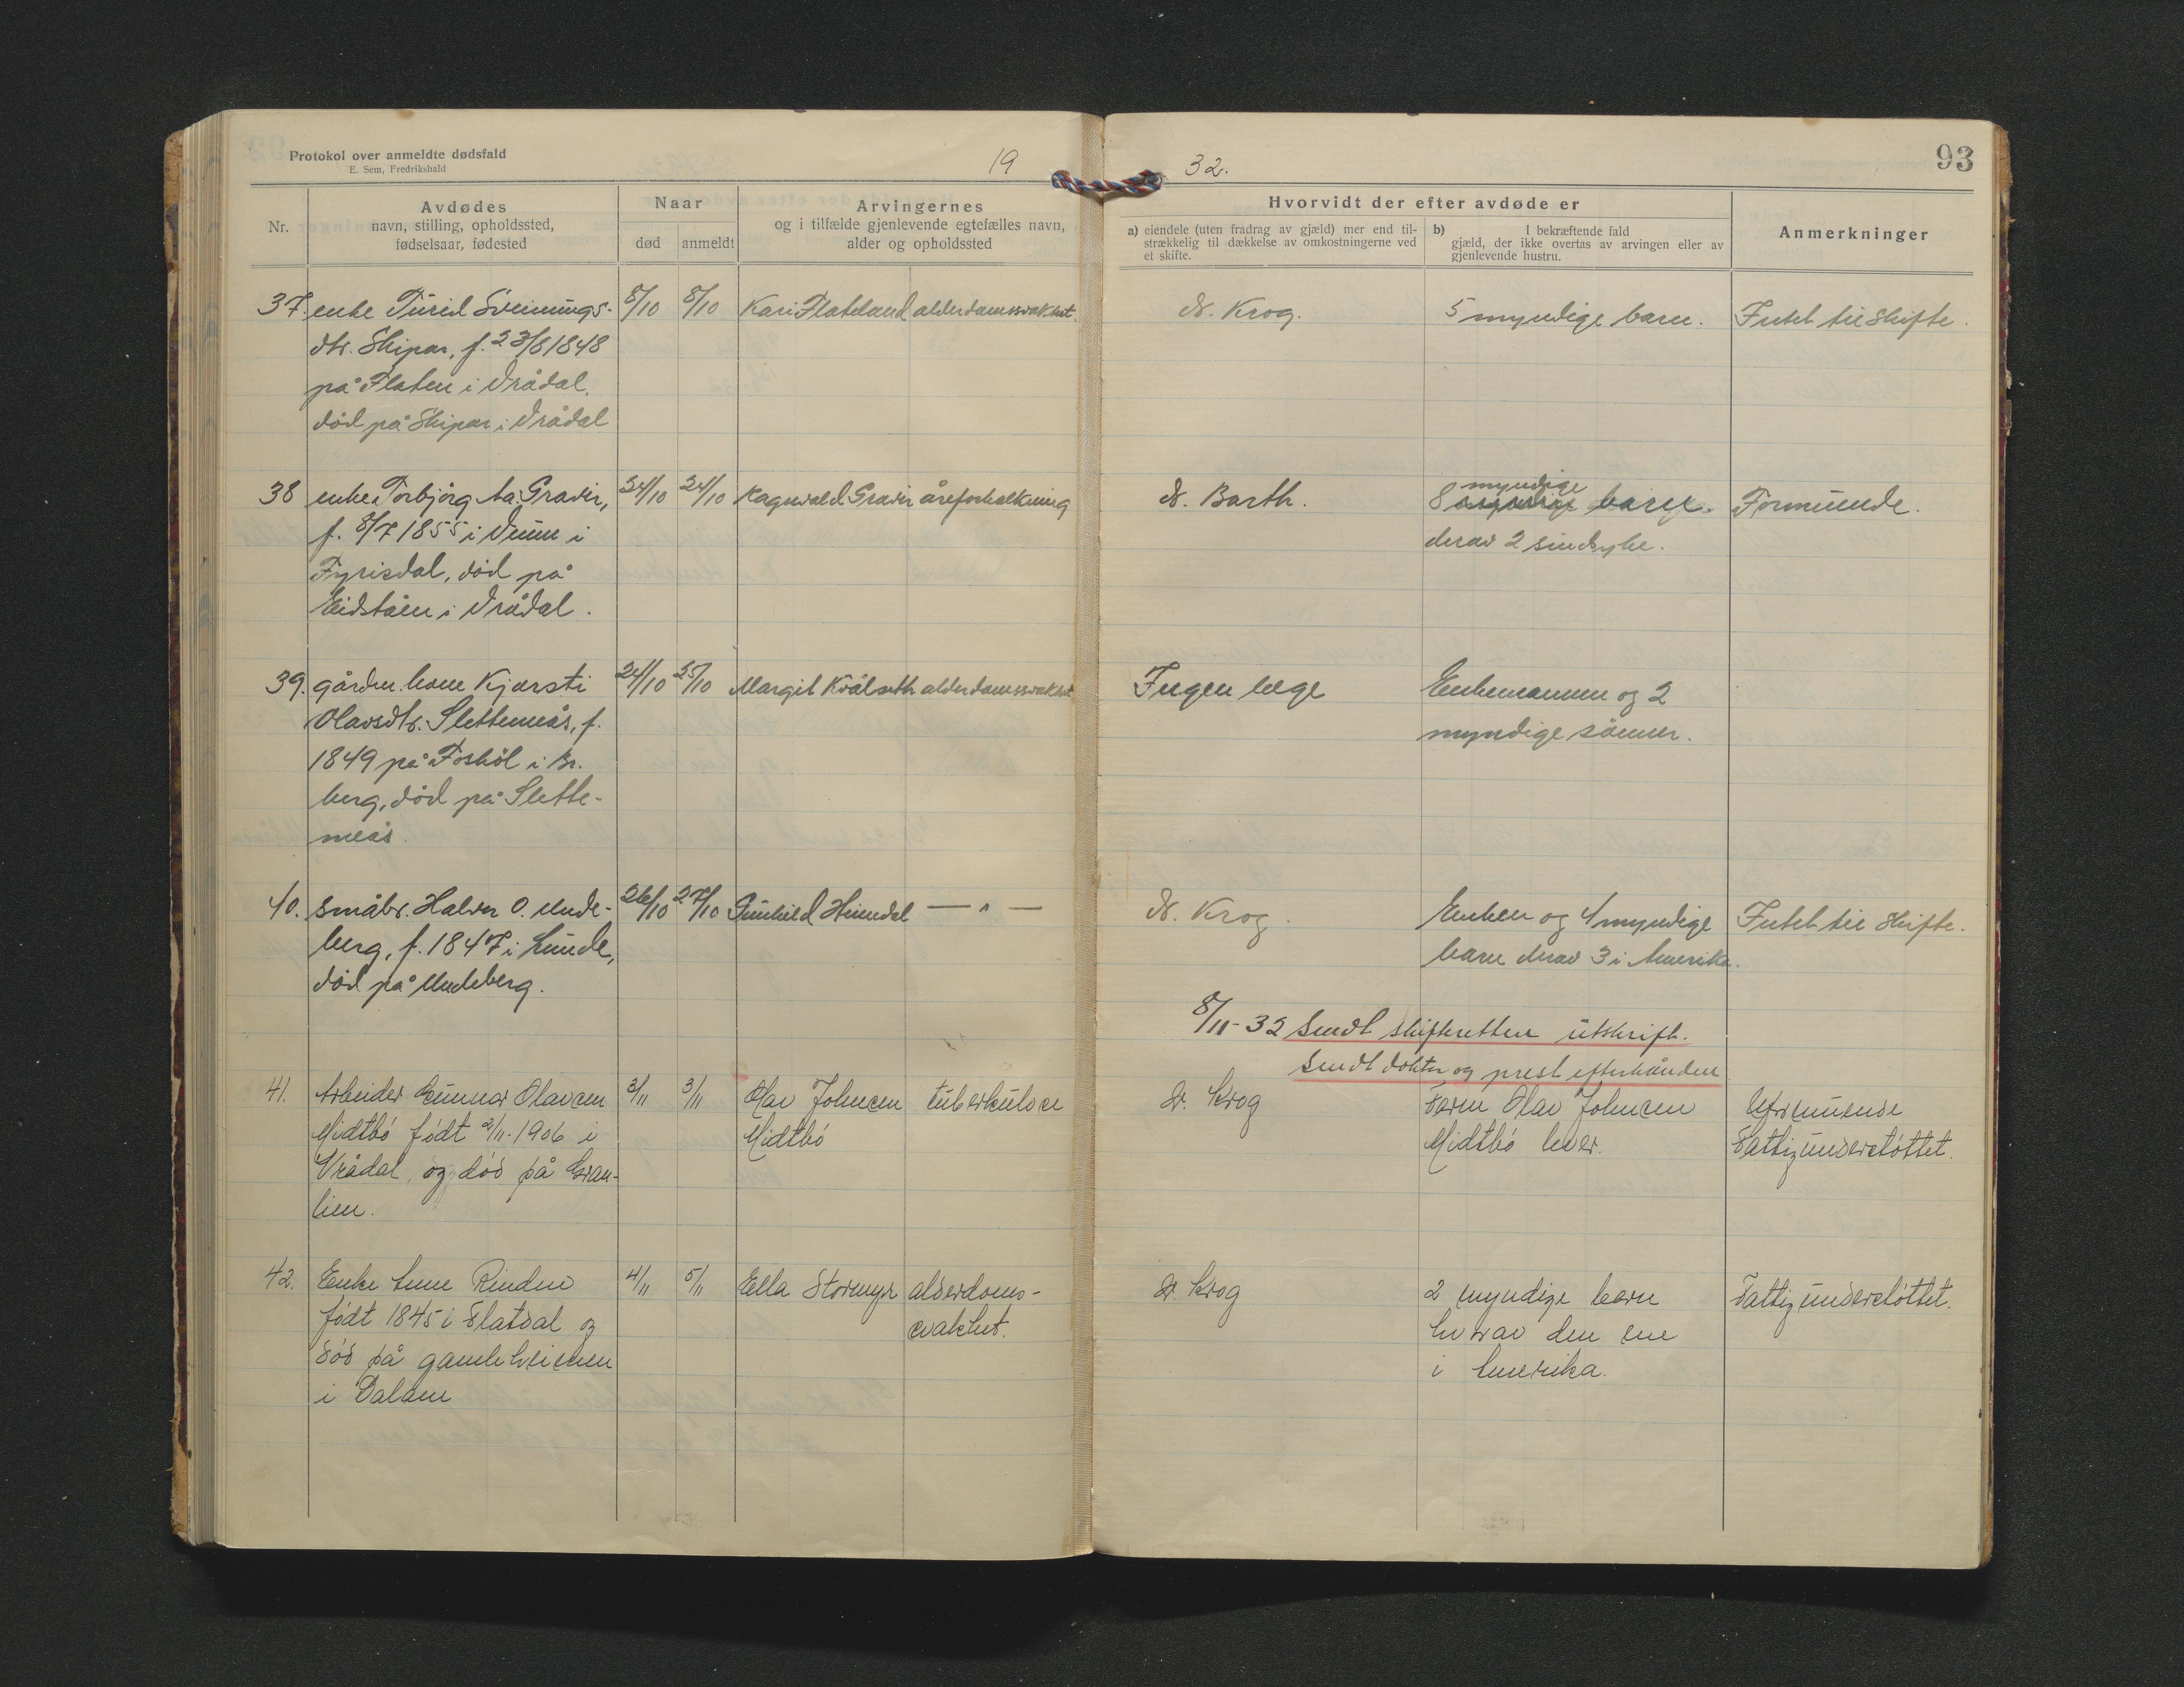 Protokol over anmeldte dødsfald
E. Sem, Fredrikshald
19 32.
93
Nr.
Avdødes
navn, stilling, opholdssted,
fødselsaar, fødested
Naar
død anmeldt
Arvingernes
og i tilfælde gjenlevende egtefælles navn,
alder og opholdssted
Hvorvidt der efter avdøde er
a) eiendele (uten fradrag av gjæld) mer end til-
strækkelig til dækkelse av omkostningerne ved
et skifte.
b) I bekræftende fald
gjæld, der ikke overtas av arvingen eller av
gjenlevende hustru.
Anmerkninger
37. enke Turid Sveinungs- 8/10 8/10 Kari Flateland alderdomssvakhet. dr. Krog. 5 myndige barn. Intet til skifte.
dtr. Skipar, f. 23/8 1848
på Flaten i Vrådal,
død på Skipar i Vrådal
38 enke Torbjørg Aa. Gravir, 24/10 24/10 Ragnvald Gravir åreforkalkning dr. Barth. 8 myndige barn. Formuende.
f. 8/7 1855 i Veum i derav 2 sindsyke.
Fyrisdal, død på
Eidståen i Vrådal.
39. gården. kone Kjersti 24/10 25/10 Margit Kvålseth alderdomssvakhet Ingen læge Enkemannen og 2
Olavsdtr. Slettemeås, f. myndige sønner.
1849 på Foshøl i Br.
berg, død på Slette-
meås.
40. småbr. Halvor O. Unde- 26/10 27/10 Gunhild Heimdal — " — dr. Krog. Enken og 4 myndige Intet til skifte.
berg, f. 1847 i Lunde, barn derav 3 i Amerika.
død på Undeberg.
8/11-32 Sendt skifteretten utskrift.
Sendt doktor og prest efterhånden
41. Arbeider Gunnar Olavsen 3/11 3/11 Olav Johnsen tuberkulose dr. Krog Faren Olav Johnsen Uformuende
Midtbø født 2/11-1906 i Midtbø Midtbø lever. Fattigunderstøttet.
Vrådal, og død på Gran-
lien.
42. Enke Anne Rinden 4/11 5/11 Ella Stormyr alderdoms- dr. Krog 2 myndige barn Fattigunderstøttet.
født 1845 i Flatdal og svakhet. hvorav den ene
død på gamleheimen i Amerika.
i Dalane